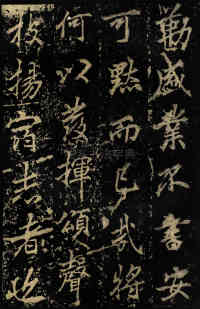 勸盛業不書安
可默而已哉將
何以發揮頌聲
枚揚宿志者也